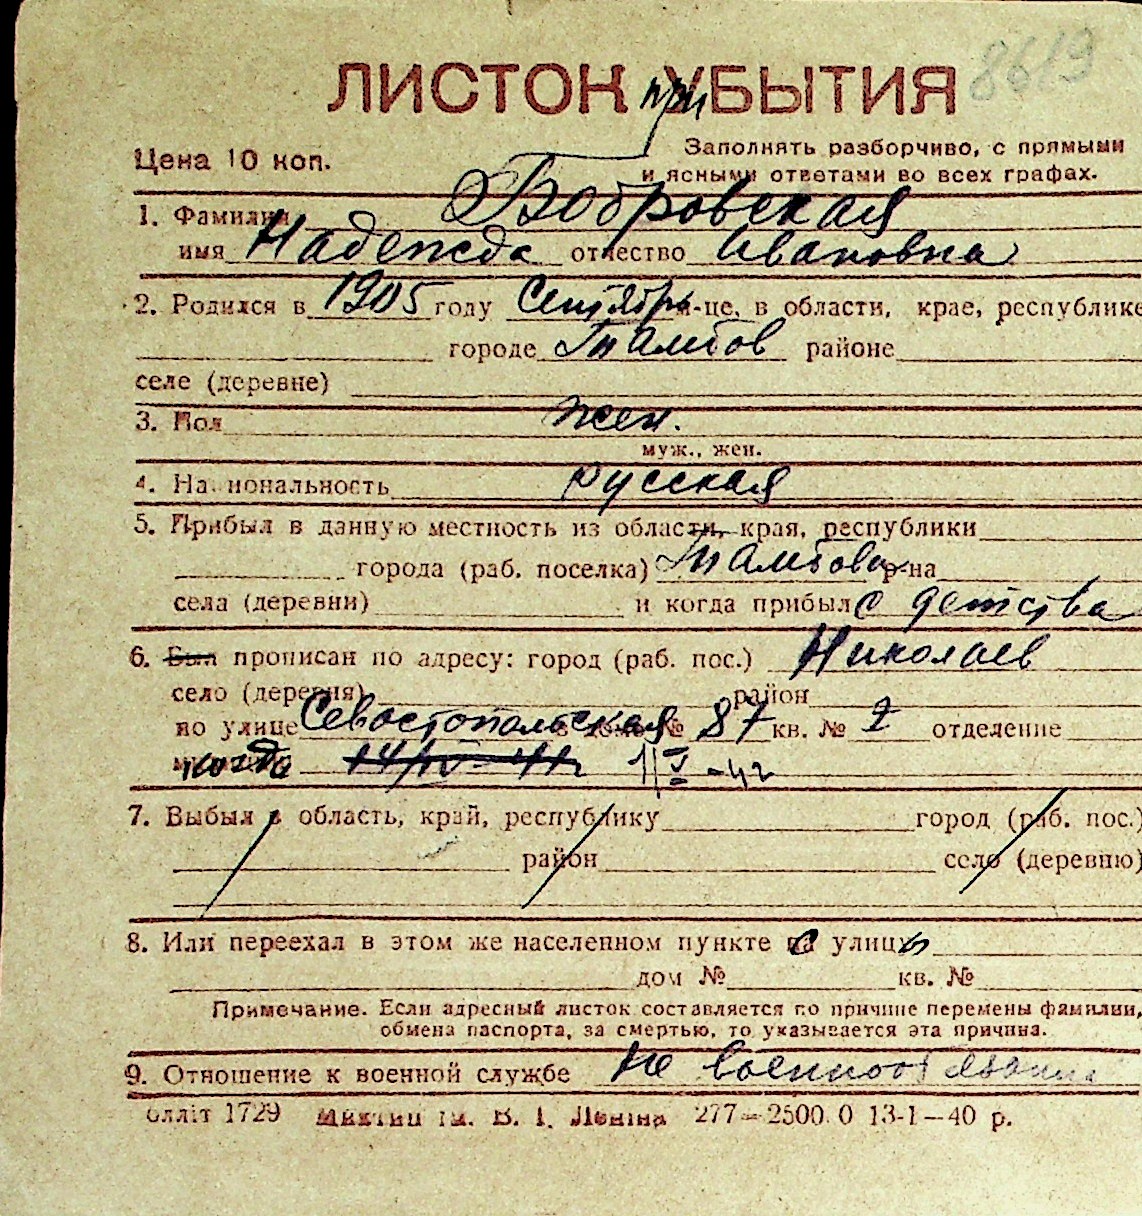 8619
ЛИСТОК при УБЫТИЯ
Цена 10 коп.
Заполнять разборчиво, с прямыми
и ясными ответами во всех графах.
1. Фамилия Бобровская
имя Надежда отчество Ивановна
2. Родился в 1905 году Сентябрь м-це, в области, крае, республике
городе Тамбов районе
селе (деревне)
3. Пол жен.
муж., жен.
4. Национальность русская
5. Прибыл в данную местность из области, края, республики
города (раб. поселка) Тамбова р-на
села (деревни) и когда прибыл с детства
6. Был прописан по адресу: город (раб. пос.) Николаев
село (деревня) район
по улице Севастопольская № 87 кв. № 2 отделение
когда 14/IV-41г 1/V-42
7. Выбыл в область, край, республику город (раб. пос.)
район село (деревню)
8. Или переехал в этом же населенном пункте с улицы
дом № кв. №
Примечание. Если адресный листок составляется по причине перемены фамилии,
обмена паспорта, за смертью, то указывается эта причина.
9. Отношение к военной службе Не военнообязанная
1729 ім. В. І. Леніна 277—2500.0 13-1—40 р.